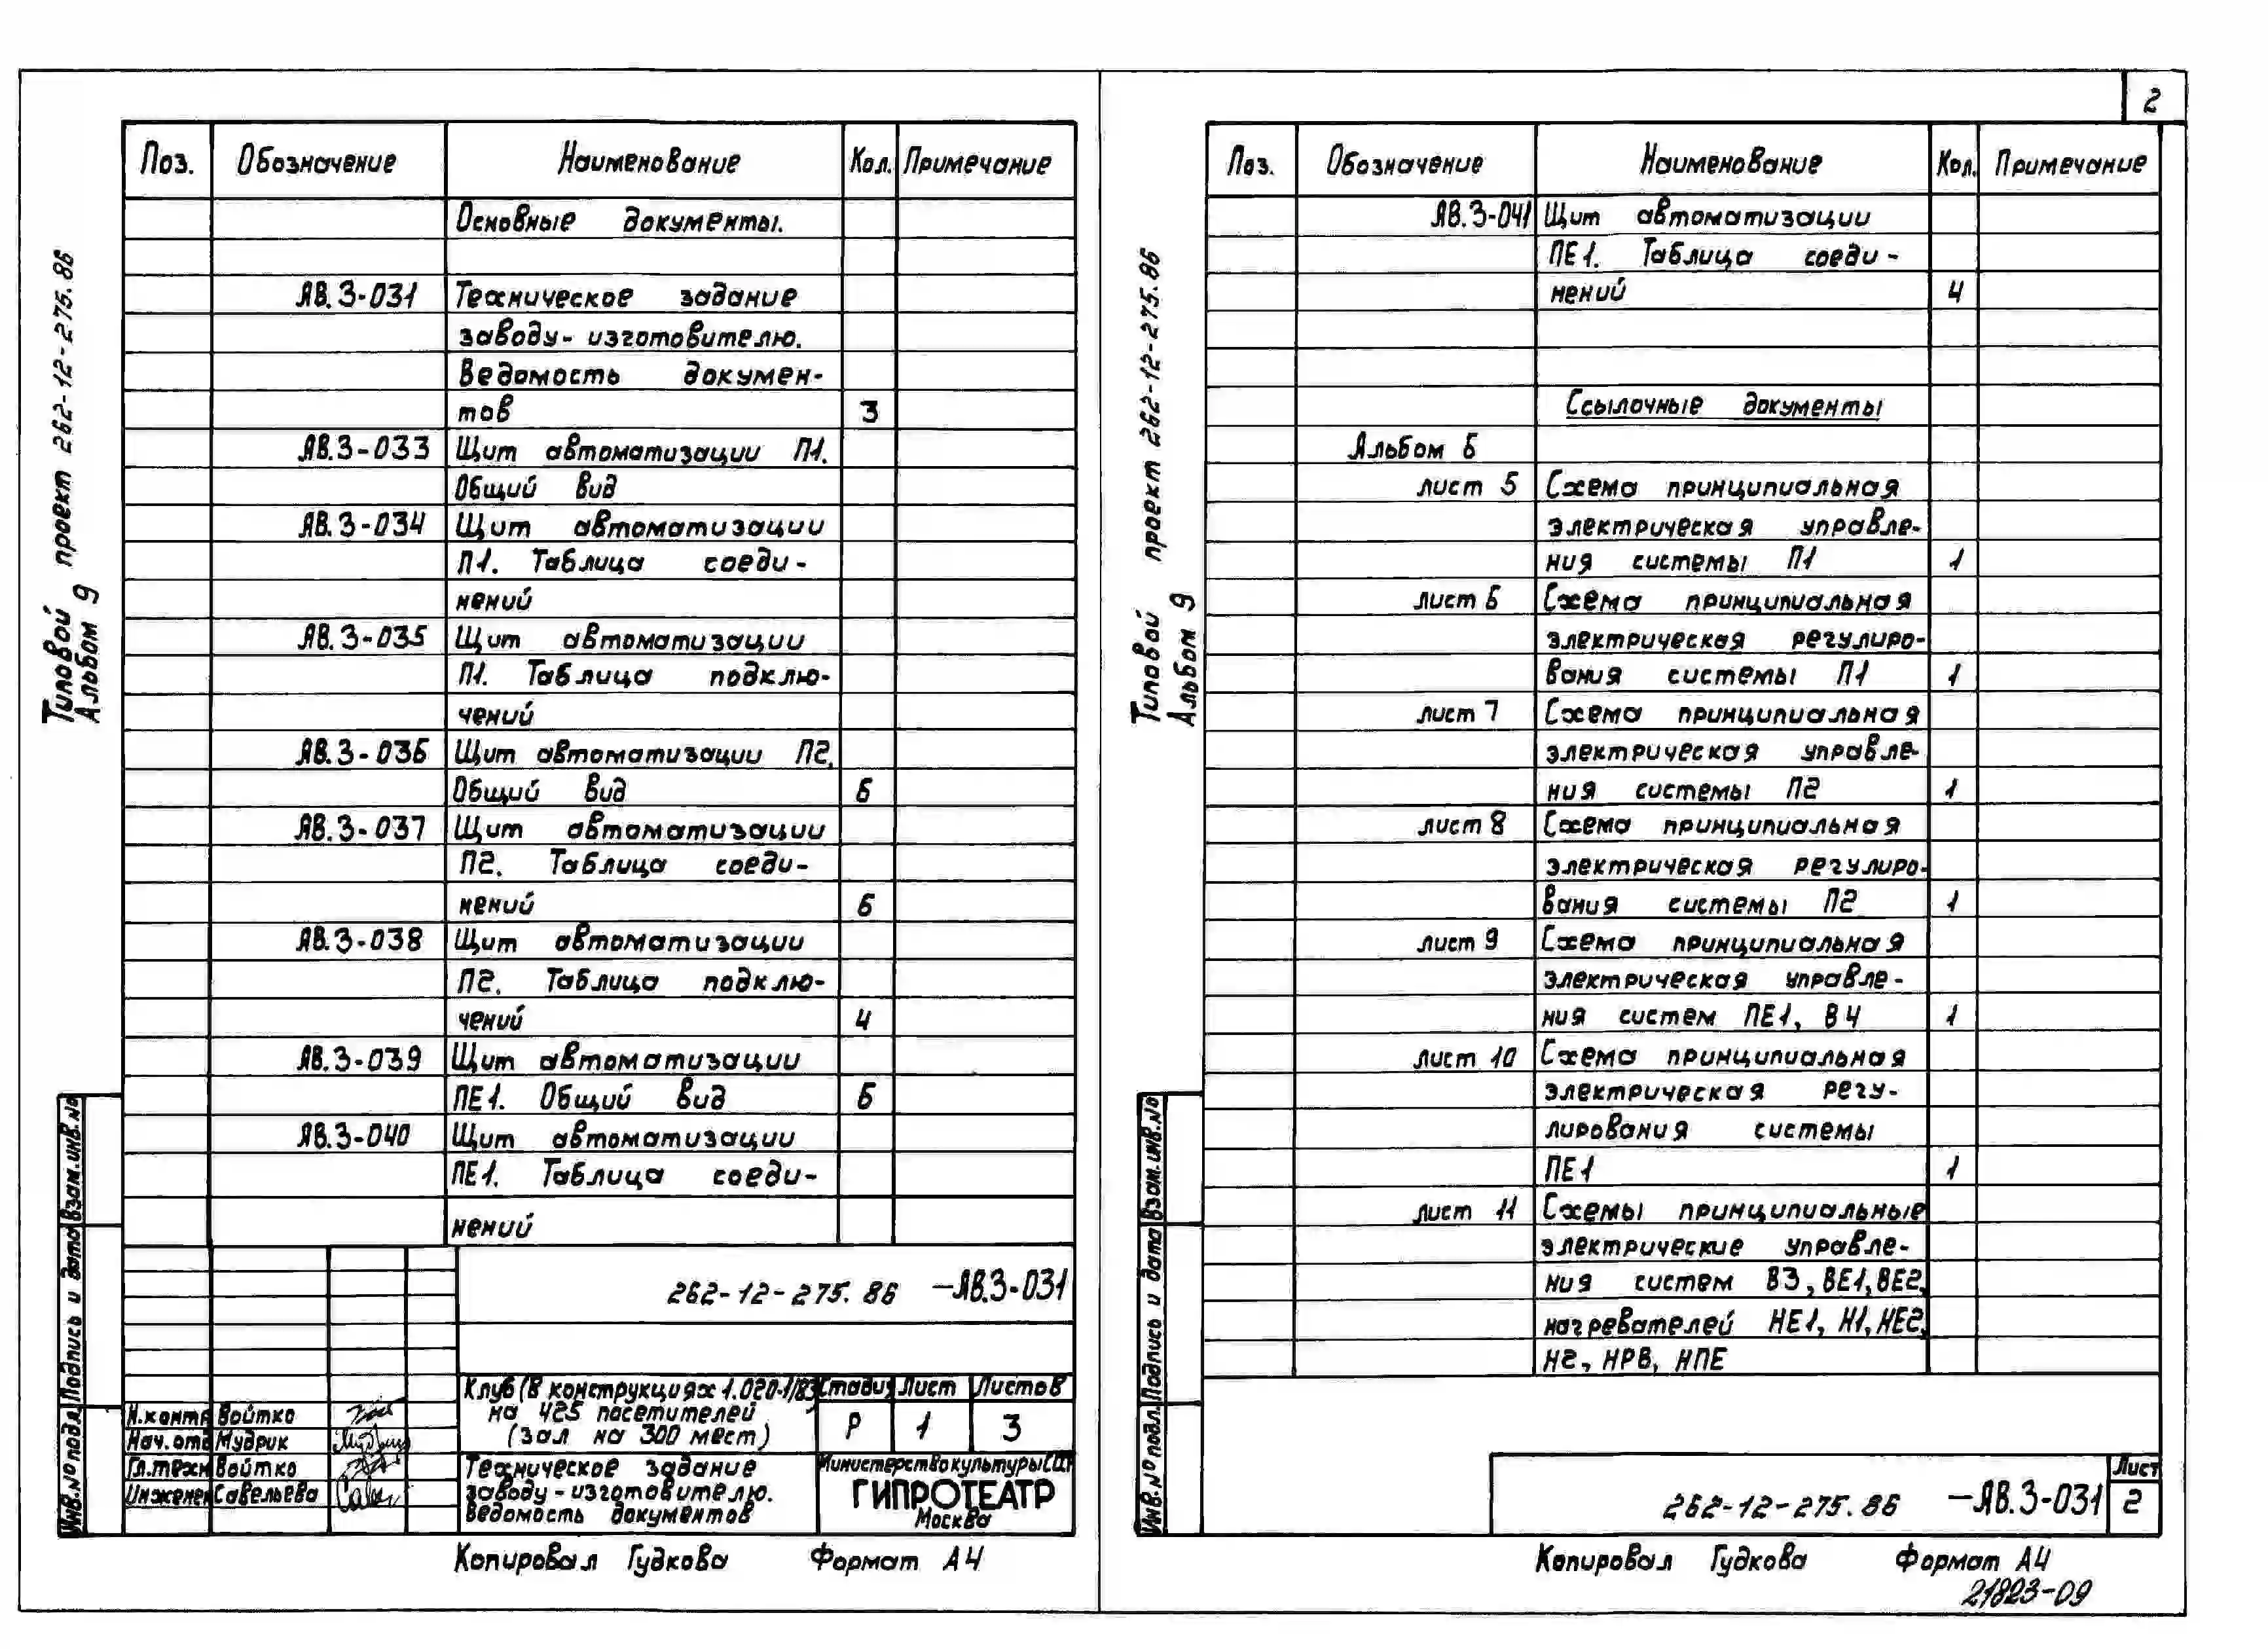 Типовой проект 262-12-275.86
Альбом 9
Поз. Обозначение Наименование Кол. Примечание
Основные документы.
ЯВ.3-031 Техническое задание
заводу-изготовителю.
Ведомость докумен-
тов 3
ЯВ.3-033 Щит автоматизации П1.
Общий вид
ЯВ.3-034 Щит автоматизации
П1. Таблица соеди-
нений
ЯВ.3-035 Щит автоматизации
П1. Таблица подклю-
чений
ЯВ.3-036 Щит автоматизации П2.
Общий вид 6
ЯВ.3-037 Щит автоматизации
П2. Таблица соеди-
нений 6
ЯВ.3-038 Щит автоматизации
П2. Таблица подклю-
чений 4
ЯВ.3-039 Щит автоматизации
ПЕ1. Общий вид 6
ЯВ.3-040 Щит автоматизации
ПЕ1. Таблица соеди-
нений
262-12-275.86 -ЯВ.3-031
Клуб (в конструкциях 1.020-1/83)
на 425 посетителей
(зал на 300 мест)
Стадия Лист Листов
Р 1 3
Н.контр Войтко
Нач.отд Мудрик
Гл.техн Войтко
Инженер Савельева
Техническое задание
заводу-изготовителю.
Ведомость документов
Министерство культуры СССР
ГИПРОТЕАТР
Москва
Взам.инв.№
Подпись и дата
Инв.№ подл.
Копировал Гудкова Формат А4
2
Типовой проект 262-12-275.86
Альбом 9
Поз. Обозначение Наименование Кол. Примечание
ЯВ.3-041 Щит автоматизации
ПЕ1. Таблица соеди-
нений 4
Ссылочные документы
Альбом 6
лист 5 Схема принципиальная
электрическая управле-
ния системы П1 1
лист 6 Схема принципиальная
электрическая регулиро-
вания системы П1 1
лист 7 Схема принципиальная
электрическая управле-
ния системы П2 1
лист 8 Схема принципиальная
электрическая регулиро-
вания системы П2 1
лист 9 Схема принципиальная
электрическая управле-
ния систем ПЕ1, В4 1
лист 10 Схема принципиальная
электрическая регу-
лирования системы
ПЕ1 1
лист 11 Схемы принципиальные
электрические управле-
ния систем В3, ВЕ1, ВЕ2,
нагревателей НЕ1, Н1, НЕ2,
Н2, НРВ, НПЕ
Взам.инв.№
Подпись и дата
Инв.№ подл.
262-12-275.86 -ЯВ.3-031
Лист
2
Копировал Гудкова Формат А4
21823-09